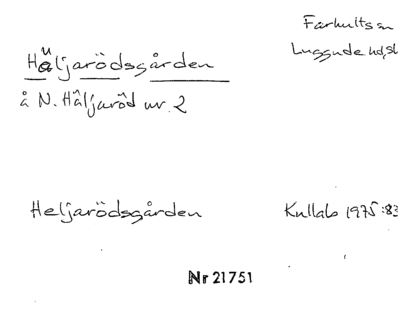 Farhults sn
Luggude hd, sk
Häljarödsgården
å N. Häljaröd nr. 2
Heljarödsgården
Kullab 1975:83
Nr 21751